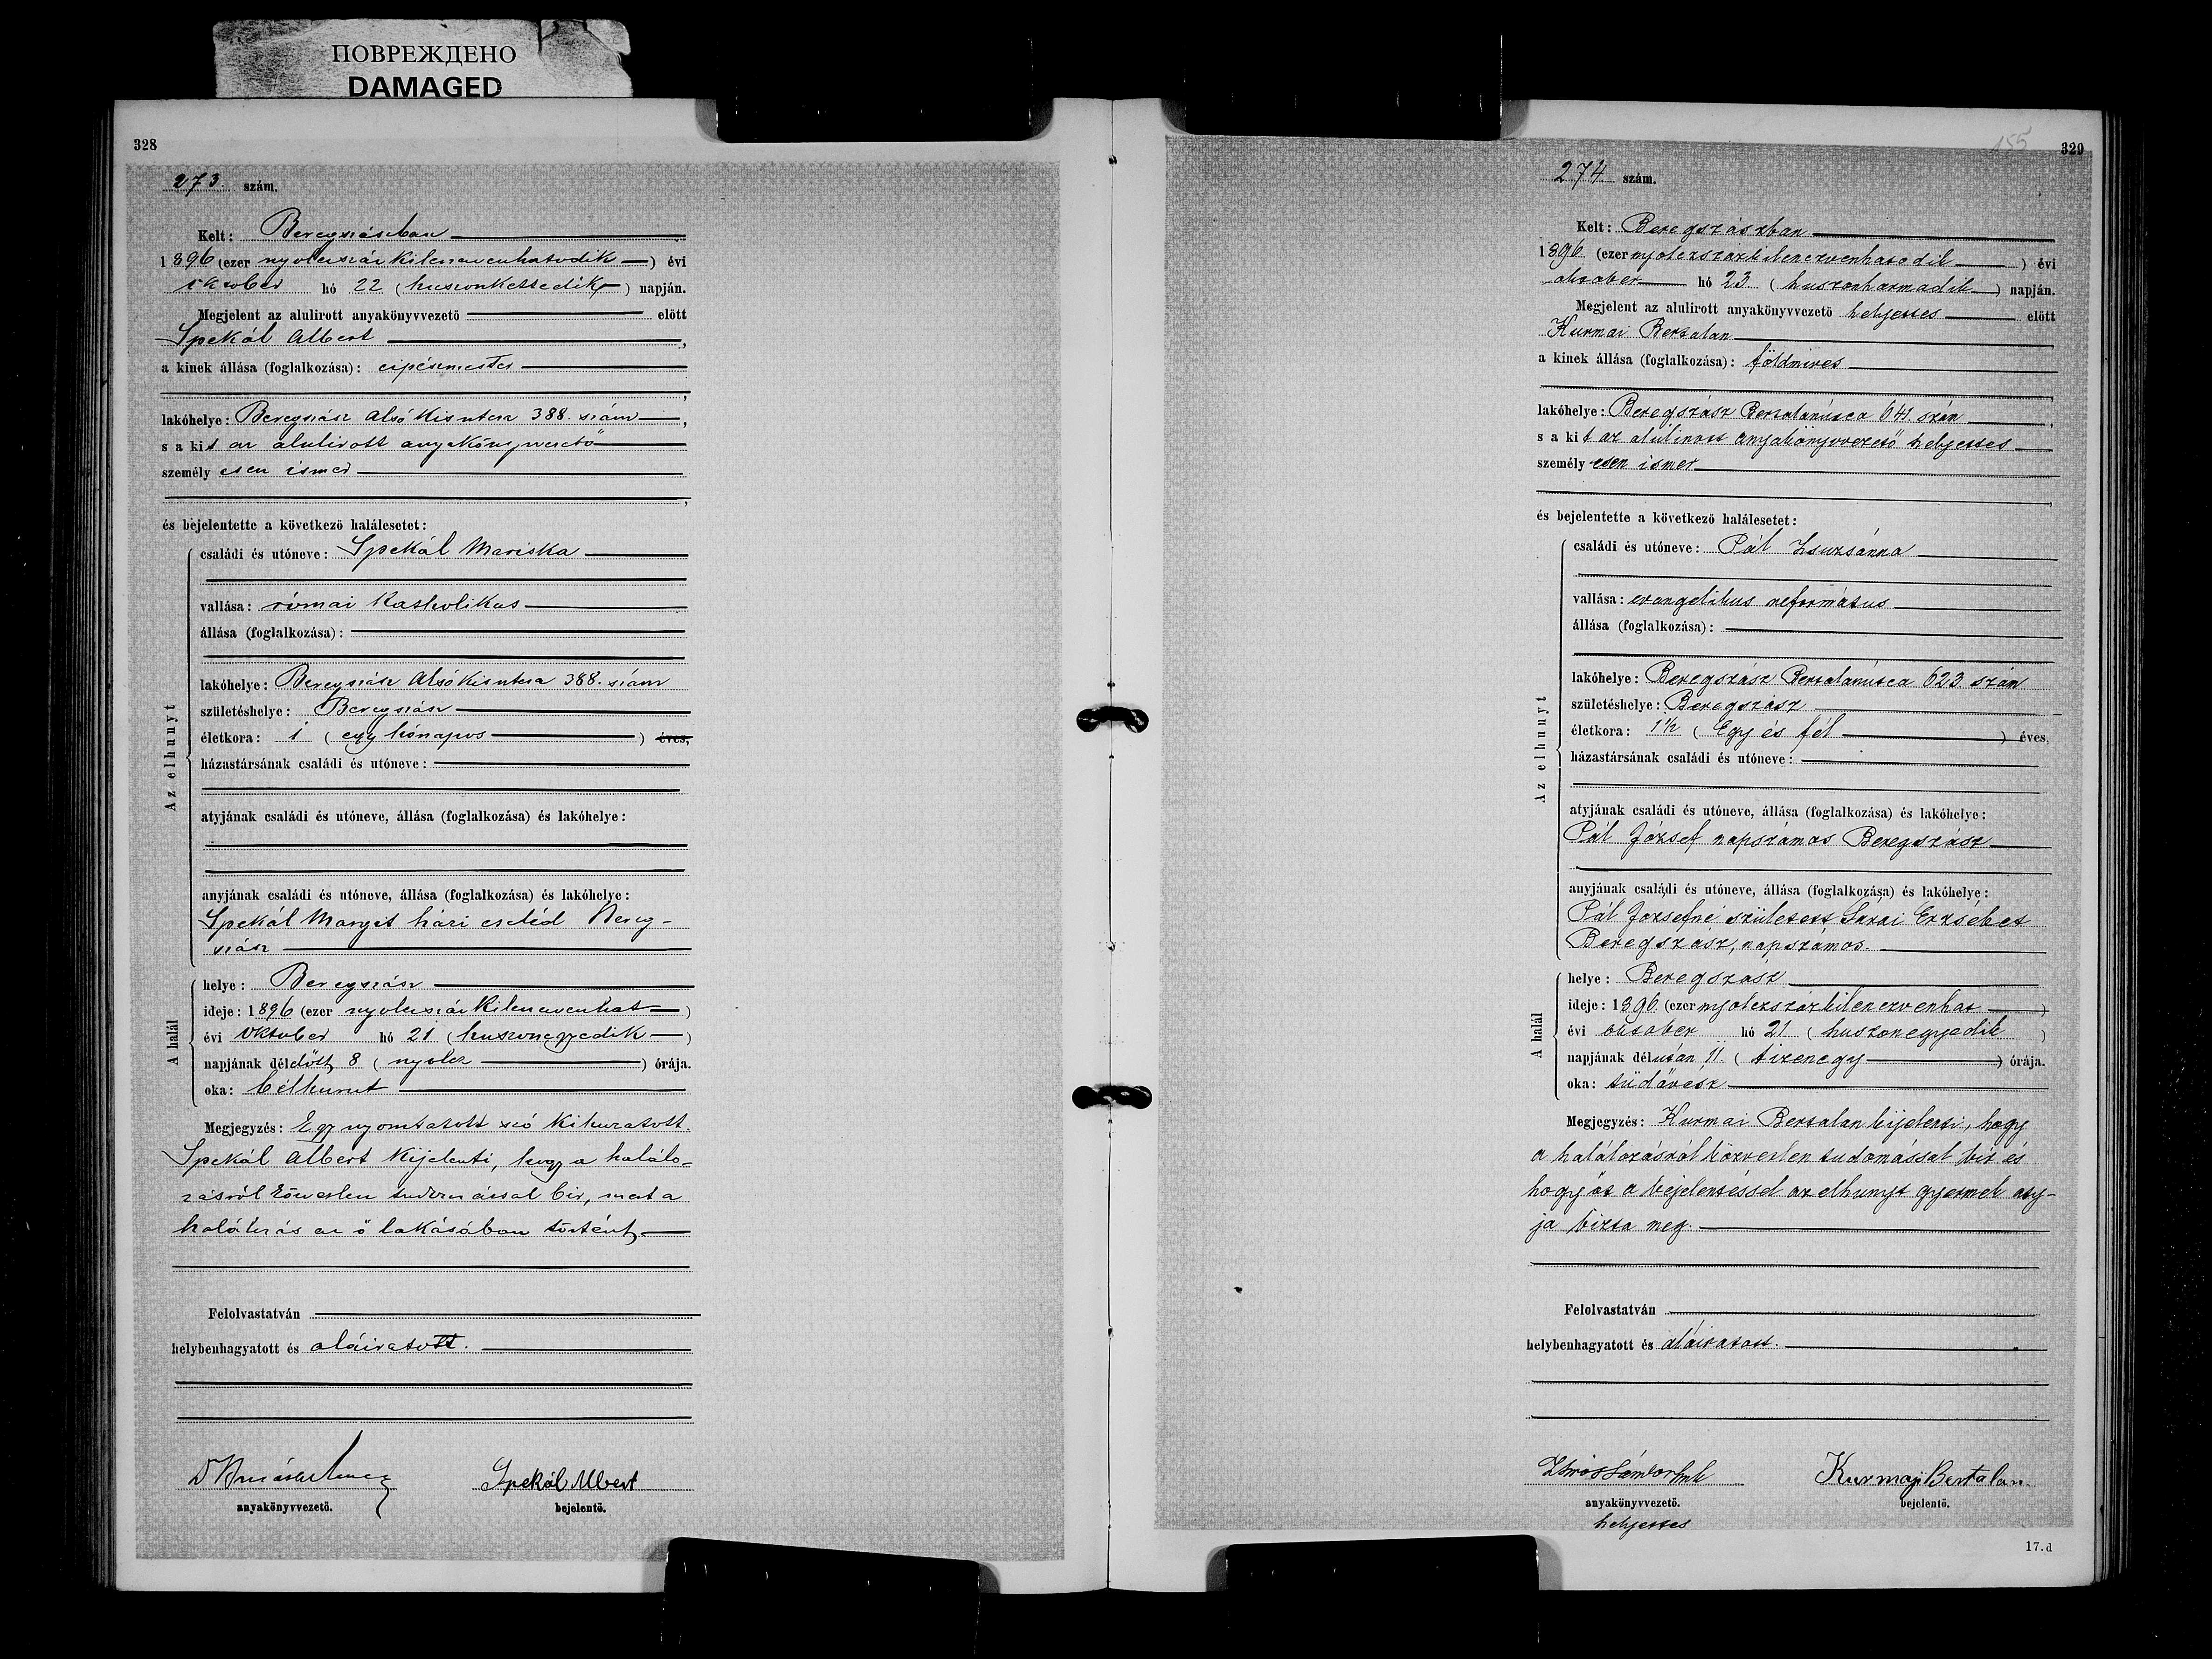 ПОВРЕЖДЕНО
DAMAGED
328
273. szám.
Kelt: Beregszászban
1896 (ezer nyolczszázkilenczvenhatodik) évi
oktober hó 22 (huszonkettedik) napján.
Megjelent az alulirott anyakönyvvezető előtt
Spekál Albert,
a kinek állása (foglalkozása): czipészmester
,
lakóhelye: Beregszász Alsó Kisutcza 388. szám,
s a kit az alulirott anyakönyvvezető
személyesen ismer
,
és bejelentette a következő halálesetet:
Az elhunyt
családi és utóneve: Spekál Mariska
vallása: római katholikus
állása (foglalkozása):
lakóhelye: Beregszász Alsó Kisutcza 388. szám
születéshelye: Beregszász
életkora: 1 (egy hónapos) éves,
házastársának családi és utóneve:
atyjának családi és utóneve, állása (foglalkozása) és lakóhelye:
anyjának családi és utóneve, állása (foglalkozása) és lakóhelye:
Spekál Margit házi cseléd Bereg-
szász
A halál
helye: Beregszász
ideje: 1896 (ezer nyolczszázkilenczvenhat)
évi oktober hó 21 (huszonegyedik)
napjának délelőtt 8 (nyolcz) órája.
oka: bélhurut
Megjegyzés: Egy nyomtatott szó kihuzatott.
Spekál Albert kijelenti, hogy a halálo-
zásról közvetlen tudomással bir, mert a
halálozás az ő lakásában történt.
Felolvastatván
helybenhagyatott és aláiratott.
anyakönyvvezető.
Spekál Albert
bejelentő.
155
329
274 szám.
Kelt: Beregszászban
1896 (ezer nyolczszázkilenczvenhatodik) évi
oktober hó 23. (huszonharmadik) napján.
Megjelent az alulirott anyakönyvvezető helyettes előtt
Kurmai Bertalan,
a kinek állása (foglalkozása): földmíves
,
lakóhelye: Beregszász Bertalanutca 641. szám,
s a kit az alulirott anyakönyvvezető helyettes
személyesen ismer
,
és bejelentette a következő halálesetet:
Az elhunyt
családi és utóneve: Pál Zsuzsánna
vallása: evangelikus református
állása (foglalkozása):
lakóhelye: Beregszász Bertalanutca 623. szám
születéshelye: Beregszász
életkora: 1½ (Egy és fél) éves,
házastársának családi és utóneve:
atyjának családi és utóneve, állása (foglalkozása) és lakóhelye:
Pál József napszámos Beregszász
anyjának családi és utóneve, állása (foglalkozása) és lakóhelye:
Pál Józsefné született Erzsébet
Beregszász, napszámos.
A halál
helye: Beregszász
ideje: 1896. (ezer nyolczszázkilenczvenhat)
évi oktober hó 21 (huszonegyedik)
napjának délután 11. (tizenegy) órája.
oka: tüdővész
Megjegyzés: Kurmai Bertalan kijelenti, hogy
a halálozásról közvetlen tudomással bír és
hogy őt a bejelentéssel az elhunyt gyermek aty-
ja bízta meg.
Felolvastatván
helybenhagyatott és aláiratott.
anyakönyvvezető.
helyettes
Kurmaji Bertalan
bejelentő.
17.d